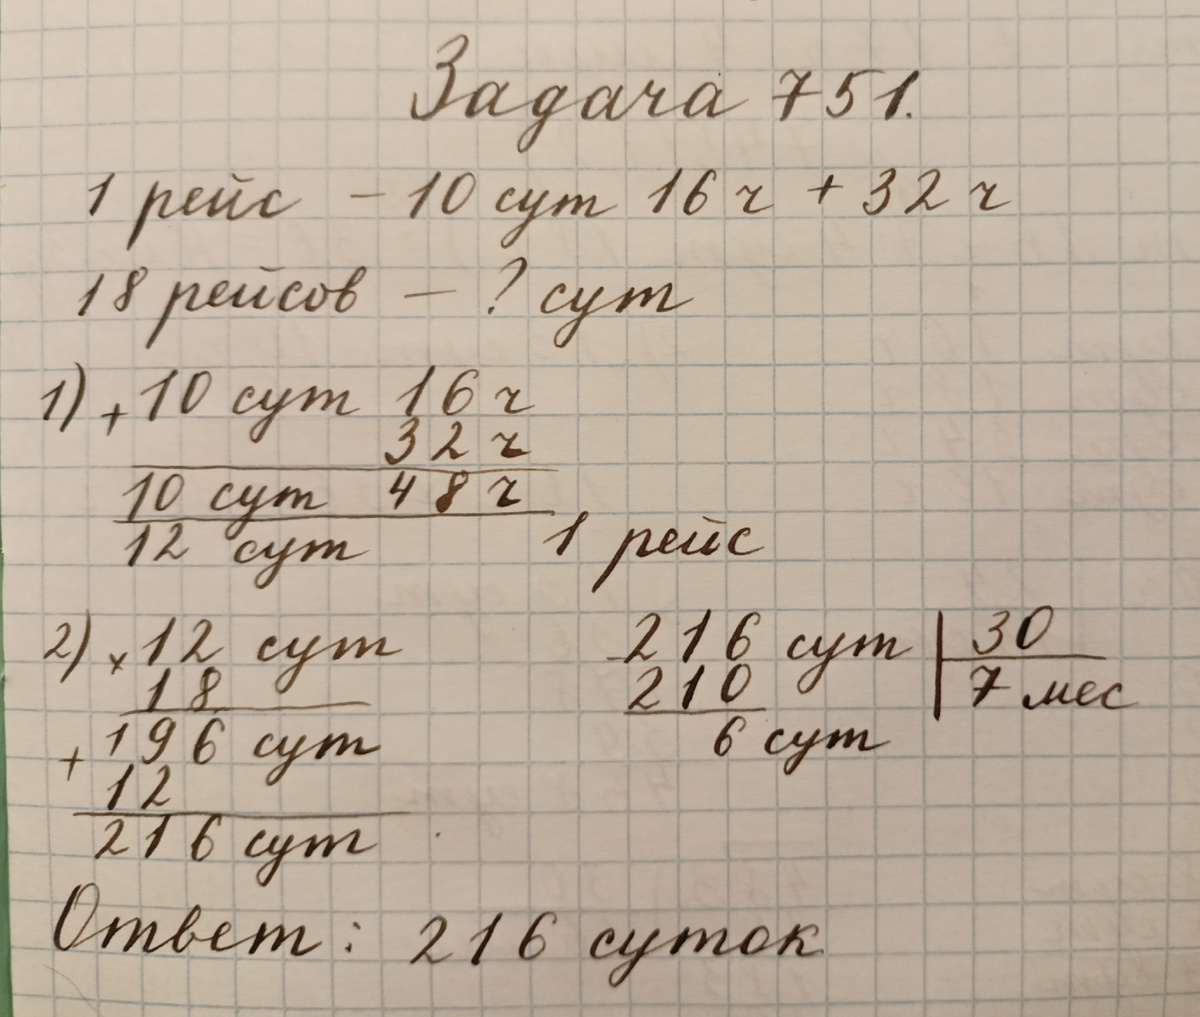 Задача 751.
1 рейс – 10 сут 16 ч + 32 ч
18 рейсов – ? сут
1) + 10 сут 16 ч
32 ч
10 сут 48 ч
12 сут 1 рейс
2) × 12 сут
18
+ 196 сут
12
216 сут
216 сут | 30
210 | 7 мес
6 сут
Ответ: 216 суток